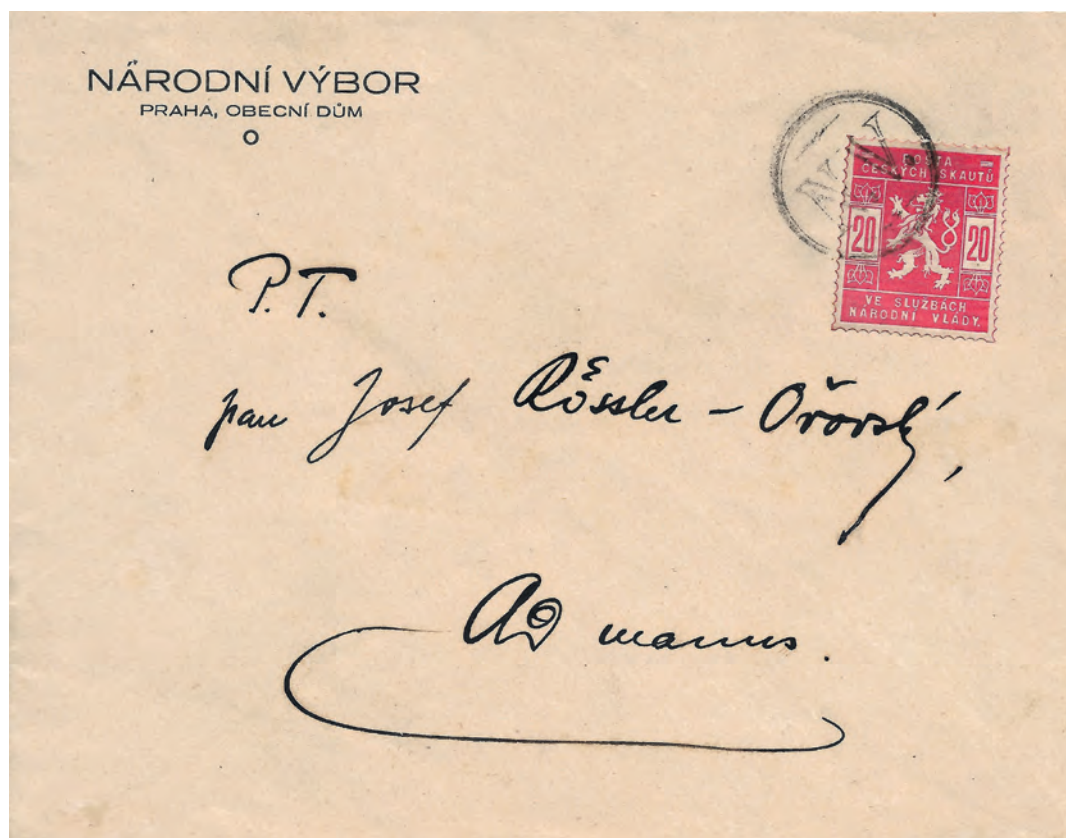 NÁRODNÍ VÝBOR
PRAHA, OBECNÍ DŮM
POŠTA
ČESKÝCH SKAUTŮ
20 20
VE SLUŽBÁCH
NÁRODNÍ VLÁDY.
P.T.
pan Josef Rössler - Ořovský,
Ad manus.